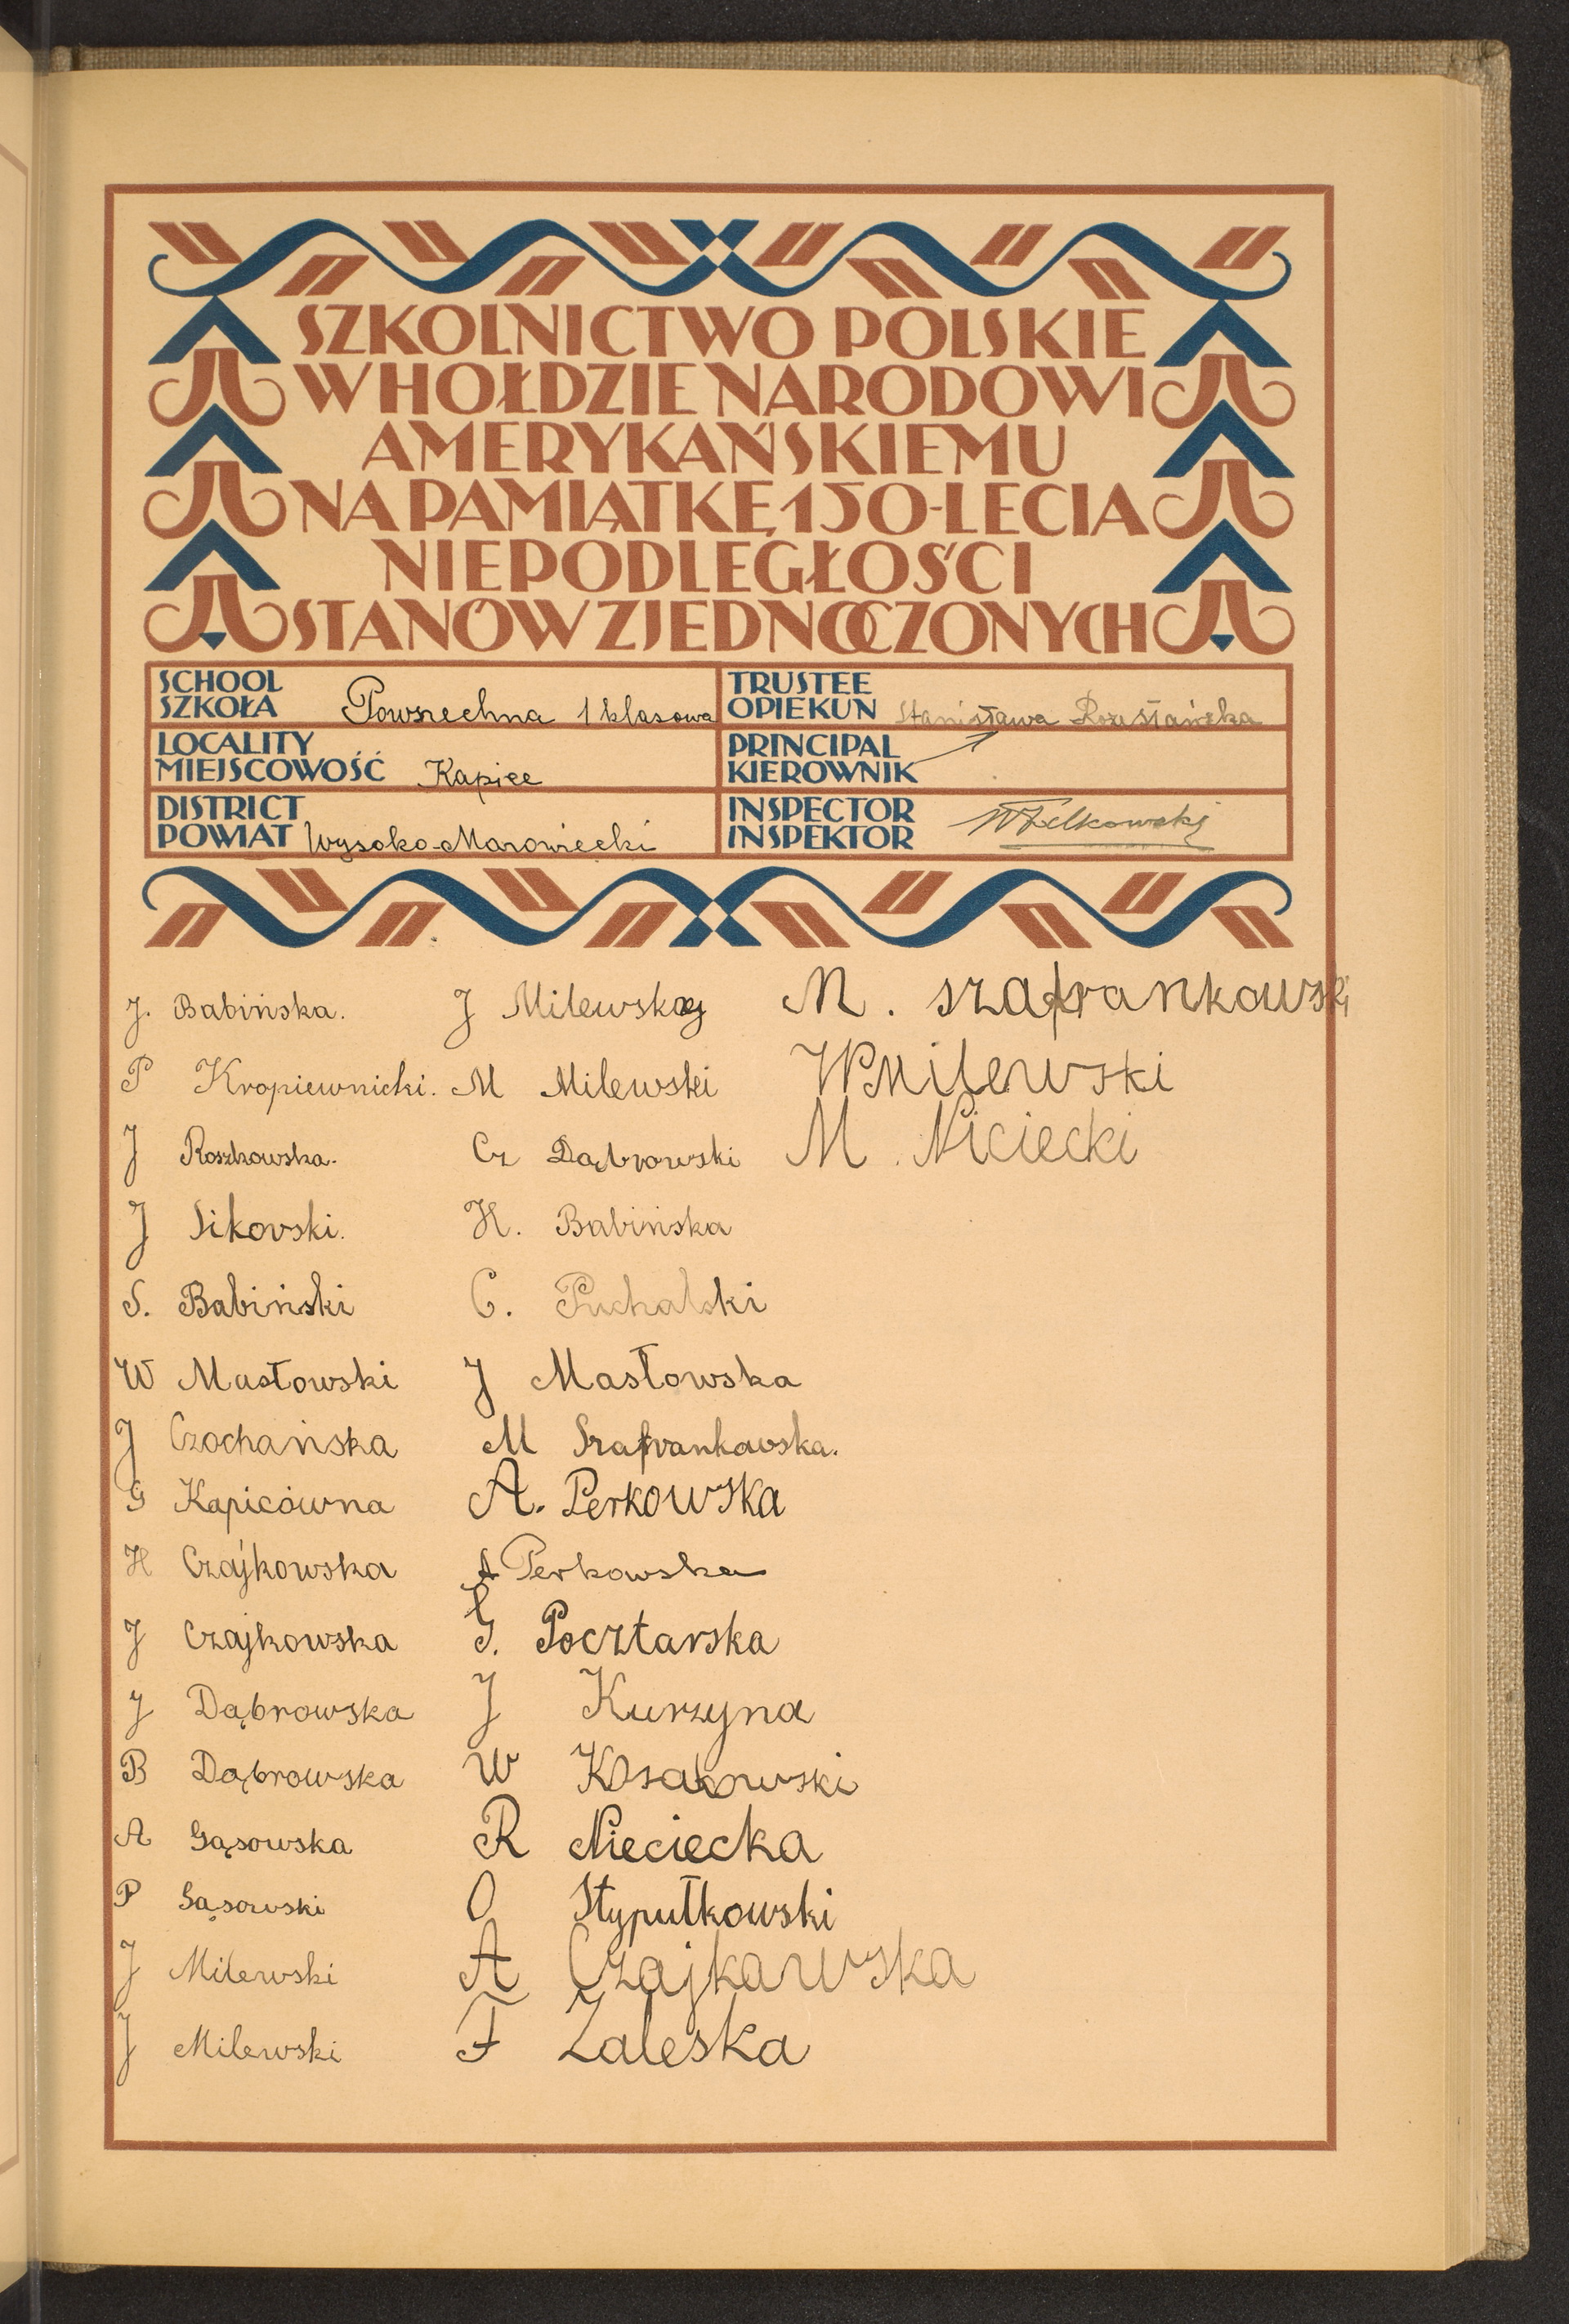 SZKOLNICTWO POLSKIE
W HOŁDZIE NARODOWI
AMERYKAŃSKIEMU
NA PAMIĄTKĘ 150-LECIA
NIEPODLEGŁOŚCI
STANÓW ZJEDNOCZONYCH
SCHOOL
SZKOŁA Powszechna 1 klasowa
TRUSTEE
OPIEKUN Stanisława
LOCALITY
MIEJSCOWOŚĆ Kapice
PRINCIPAL
KIEROWNIK
DISTRICT
POWIAT Wysoko-Mazowiecki
INSPECTOR
INSPEKTOR
J. Babińska.
P Kropiewnicki.
J Roszkowska.
J Sikorski.
S. Babiński
W Masłowski
J Czochańska
G Kapicówna
H Czajkowska
J Czajkowska
J Dąbrowska
B Dąbrowska
A Gąsowska
P Gąsowski
J Milewski
J Milewski
J
M Milewski
Cz Dąbrowski
H. Babińska
C. Puchalski
J Masłowska
M Szafrankowska.
A. Perkowska
A Perkowska
G. Pocztarska
J Kurzyna
W Kosakowski
R Nieciecka
O Stypułkowski
A Czajkawska
F Zaleska
M. szafrankowski
W Milewski
M. Niciecki